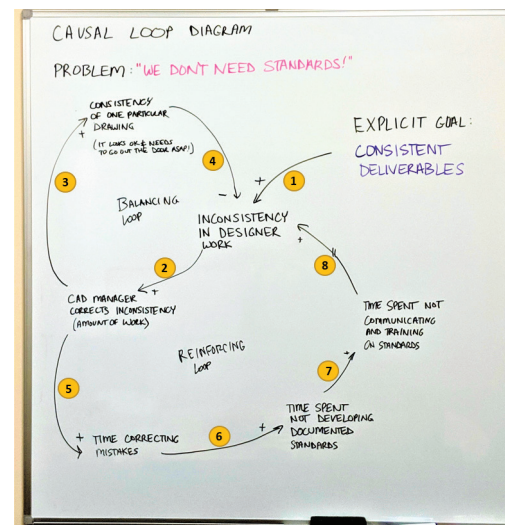 CAUSAL LOOP DIAGRAM
PROBLEM: "WE DON'T NEED STANDARDS!"
CONSISTENCY
OF ONE PARTICULAR
DRAWING
+
(IT LOOKS OK & NEEDS
TO GO OUT THE DOOR ASAP!)
4
3
EXPLICIT GOAL:
CONSISTENT
DELIVERABLES
1
+
-
BALANCING
LOOP
INCONSISTENCY
IN DESIGNER
WORK
+
2
+
8
CAD MANAGER
CORRECTS INCONSISTENCY
(AMOUNT OF WORK)
TIME SPENT NOT
COMMUNICATING
AND TRAINING
ON STANDARDS
+
REINFORCING
LOOP
7
5
+ TIME CORRECTING
MISTAKES
6
+
TIME SPENT
NOT DEVELOPING
DOCUMENTED
STANDARDS